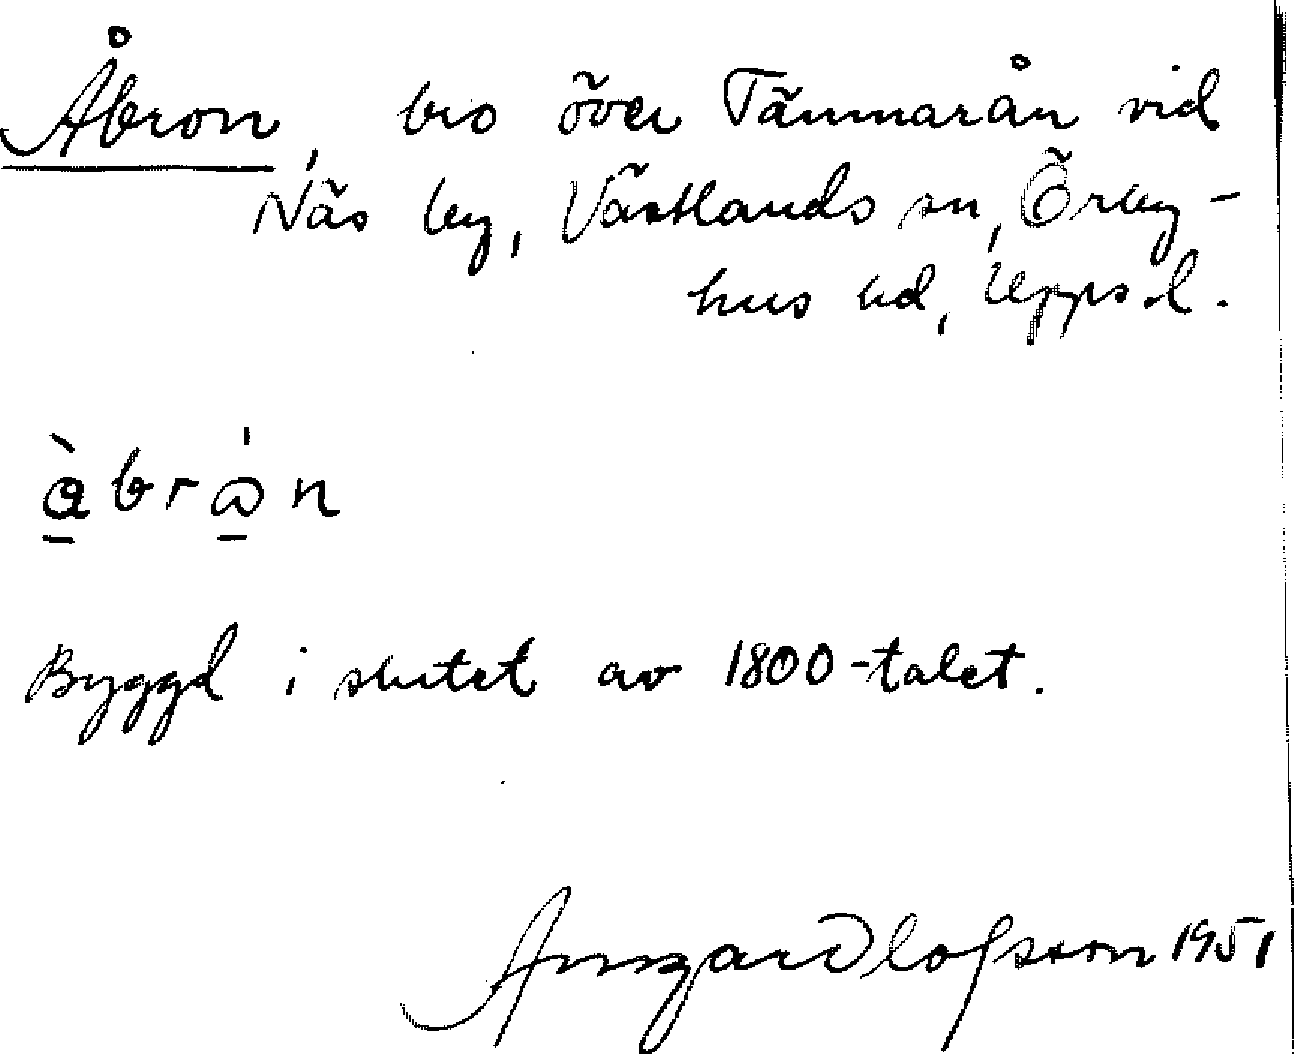 Åbron, bro över Tämnarån vid
Näs by, Västlands sn, Örby-
hus hd, Upps. l.
Byggd i slutet av 1800-talet.
Olofsson 1951